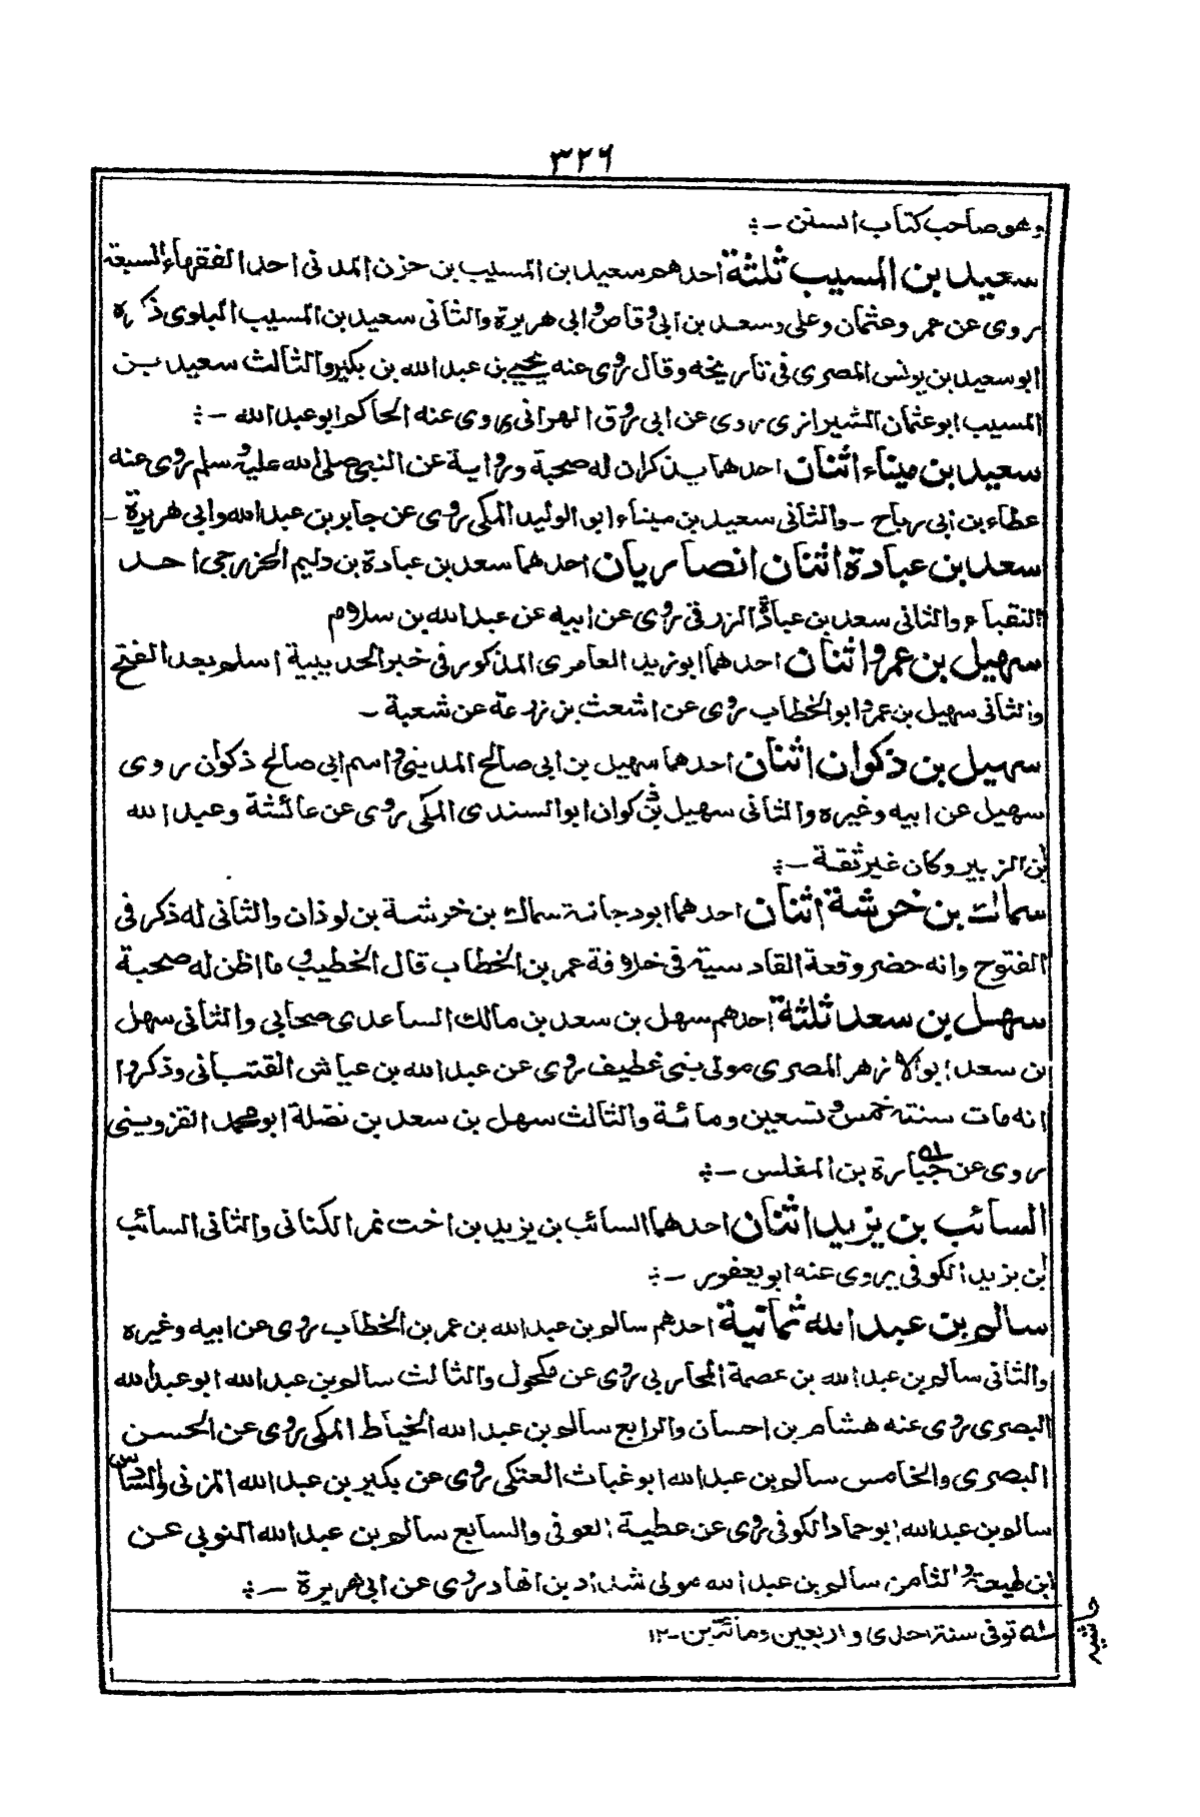 ٣٢٦
وهو صاحب كتاب السنن -
سعيد بن المسيب ثلثة احدهم سعيد بن المسيب بن حزن المدنى احد الفقهاء السبعة
روى عن عمر وعثمان وعلى وسعد بن ابى وقاص وابى هريرة والثانى سعيد بن المسيب البلوى ذكره
ابو سعيد بن يونس المصرى فى تاريخه وقال روى عنه يحيى بن عبد الله بن بكير والثالث سعيد بن
المسيب ابو عثمان الشيرازى روى عن ابى روق الهزانى روى عنه الحاكم ابو عبد الله -
سعيد بن ميناء اثنان احدهما يذكر ان له صحبة ورواية عن النبى صلى الله عليه وسلم روى عنه
عطاء بن ابى رباح - والثانى سعيد بن ميناء ابو الوليد المكى روى عن جابر بن عبد الله وابى هريرة -
سعد بن عبادة اثنان انصاريان احدهما سعد بن عبادة بن دليم الخزرجى احد
النقباء والثانى سعد بن عبادة الزرقى روى عن ابيه عن عبد الله بن سلام
سهيل بن عمرو اثنان احدهما ابو زيد العامرى المذكور فى خبر الحديبية اسلم بعد الفتح
والثانى سهيل بن عمرو ابو الخطاب روى عن اشعث بن زرعة عن شعبة -
سهيل بن ذكوان اثنان احدهما سهيل بن ابى صالح المدينى واسم ابى صالح ذكوان روى
سهيل عن ابيه وغيره والثانى سهيل بن ذكوان ابو السندى المكى روى عن عائشة وعبد الله
بن الزبير وكان غير ثقة -
سماك بن خرشة اثنان احدهما ابو دجانة سماك بن خرشة بن لوذان والثانى له ذكر فى
الفتوح وانه حضر وقعة القادسية فى خلافة عمر بن الخطاب قال الخطيب وما اظن له صحبة
سهل بن سعد ثلثة احدهم سهل بن سعد بن مالك الساعدى صحابى والثانى سهل
بن سعد ابو الازهر المصرى مولى بنى غطيف روى عن عبد الله بن عياش القتبانى وذكروا
انه مات سنة خمس وتسعين ومائة والثالث سهل بن سعد بن نضلة ابو محمد القزوينى
روى عن جبارة ١ه بن المغلس -
السائب بن يزيد اثنان احدهما السائب بن يزيد بن اخت نمر الكنانى والثانى السائب
بن يزيد الكوفى يروى عنه ابو يعفور -
سالم بن عبد الله ثمانية احدهم سالم بن عبد الله بن عمر بن الخطاب روى عن ابيه وغيره
والثانى سالم بن عبد الله بن عصمة المحاربى روى عن مكحول والثالث سالم بن عبد الله ابو عبد الله
البصرى روى عنه هشام بن احسان والرابع سالم بن عبد الله الخياط المكى روى عن الحسن
البصرى والخامس سالم بن عبد الله ابو غياث العتكى روى عن بكير بن عبد الله المزنى والسادس
سالم بن عبد الله ابو حماد الكوفى روى عن عطية العوفى والسابع سالم بن عبد الله النوبى عن
ابن طيعة والثامن سالم بن عبد الله مولى شداد بن الهاد روى عن ابى هريرة -
١ه توفى سنة احدى واربعين ومائتين - ١٢
حاشيه